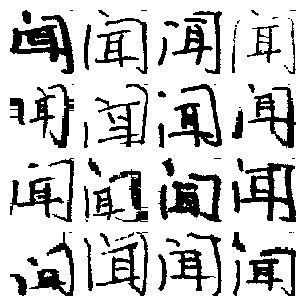 闻闻闻闻
闻闻闻闻
闻闻闻闻
闻闻闻闻